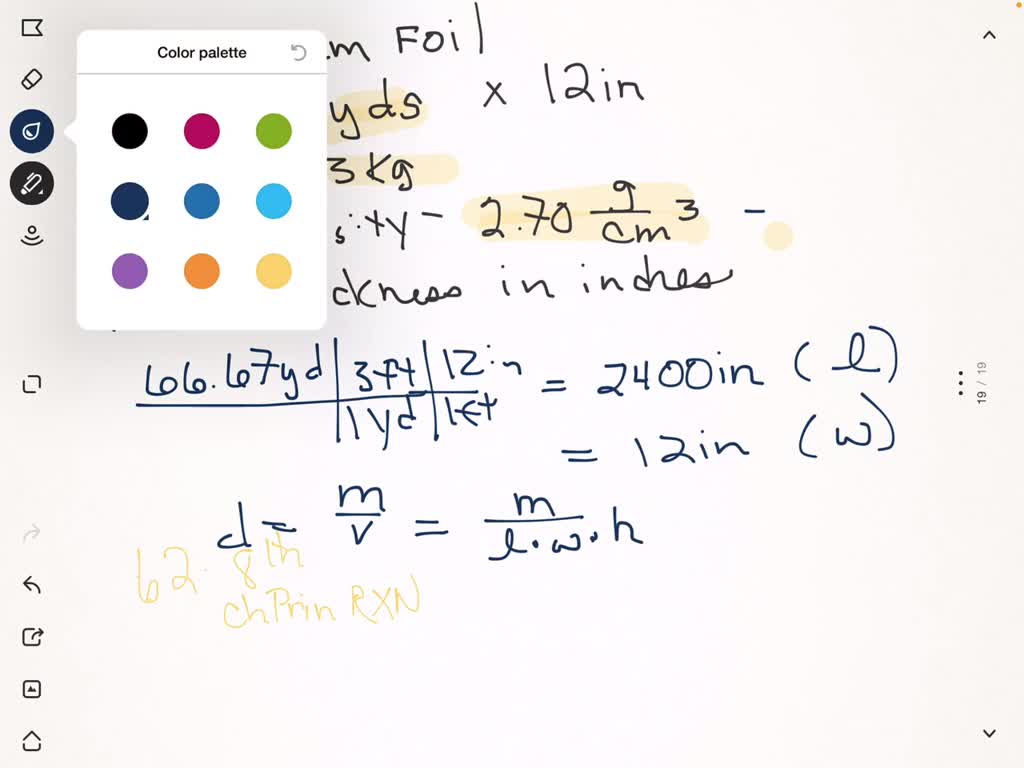 Color palette
m FOil
yds x 12in
3 Kg
sity - 2.70 g/cm3 -
ckness in inches
66.67yd | 3ft | 12in = 2400in (l)
| 1yd | 1ft
= 12in (w)
d = m/v = m/l·w·h
62. 8th
chPrin RXN
19 / 19